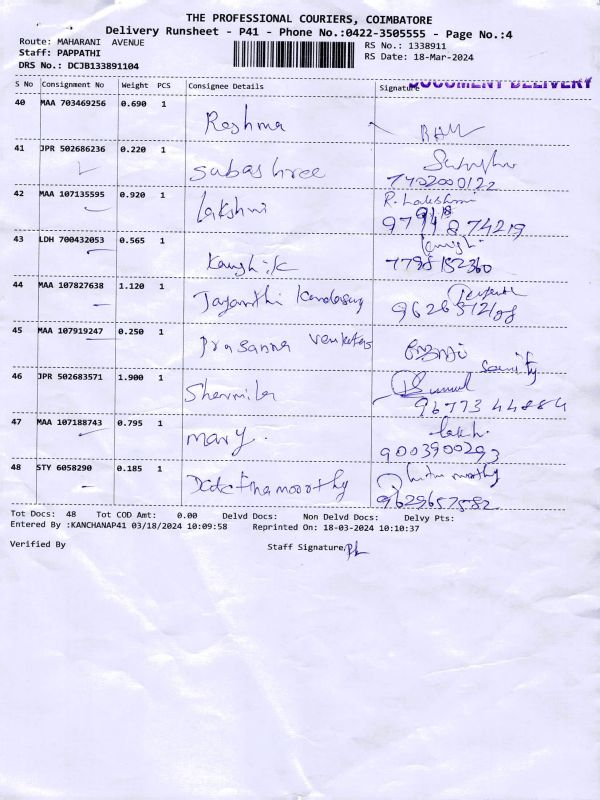 THE PROFESSIONAL COURIERS, COIMBATORE
Delivery Runsheet - P41 - Phone No.:0422-3505555 - Page No.:4
Route: MAHARANI AVENUE
RS No.: 1338911
Staff: PAPPATHI
RS Date: 18-Mar-2024
DRS No.: DCJB133891104
DOCUMENT DELIVERY
S No Consignment No Weight PCS Consignee Details Signature
40 MAA 703469256 0.690 1
Reshma
41 JPR 502686236 0.220 1
Subashree
7402000122
42 MAA 107135595 0.920 1
R. Lakshmi
Lakshmi
43 LDH 700432053 0.565 1
Kaushik
44 MAA 107827638 1.120 1
Jayanthi Kandasamy
45 MAA 107919247 0.250 1
Prasanna
46 JPR 502683571 1.900 1
Sharmila
96773 44884
47 MAA 107188743 0.795 1
mary.
9003900293
48 STY 6058290 0.185 1
9629657582
Tot Docs: 48 Tot COD Amt: 0.00 Delvd Docs: Non Delvd Docs: Delvy Pts:
Entered By :KANCHANAP41 03/18/2024 10:09:58 Reprinted On: 18-03-2024 10:10:37
Verified By Staff Signature